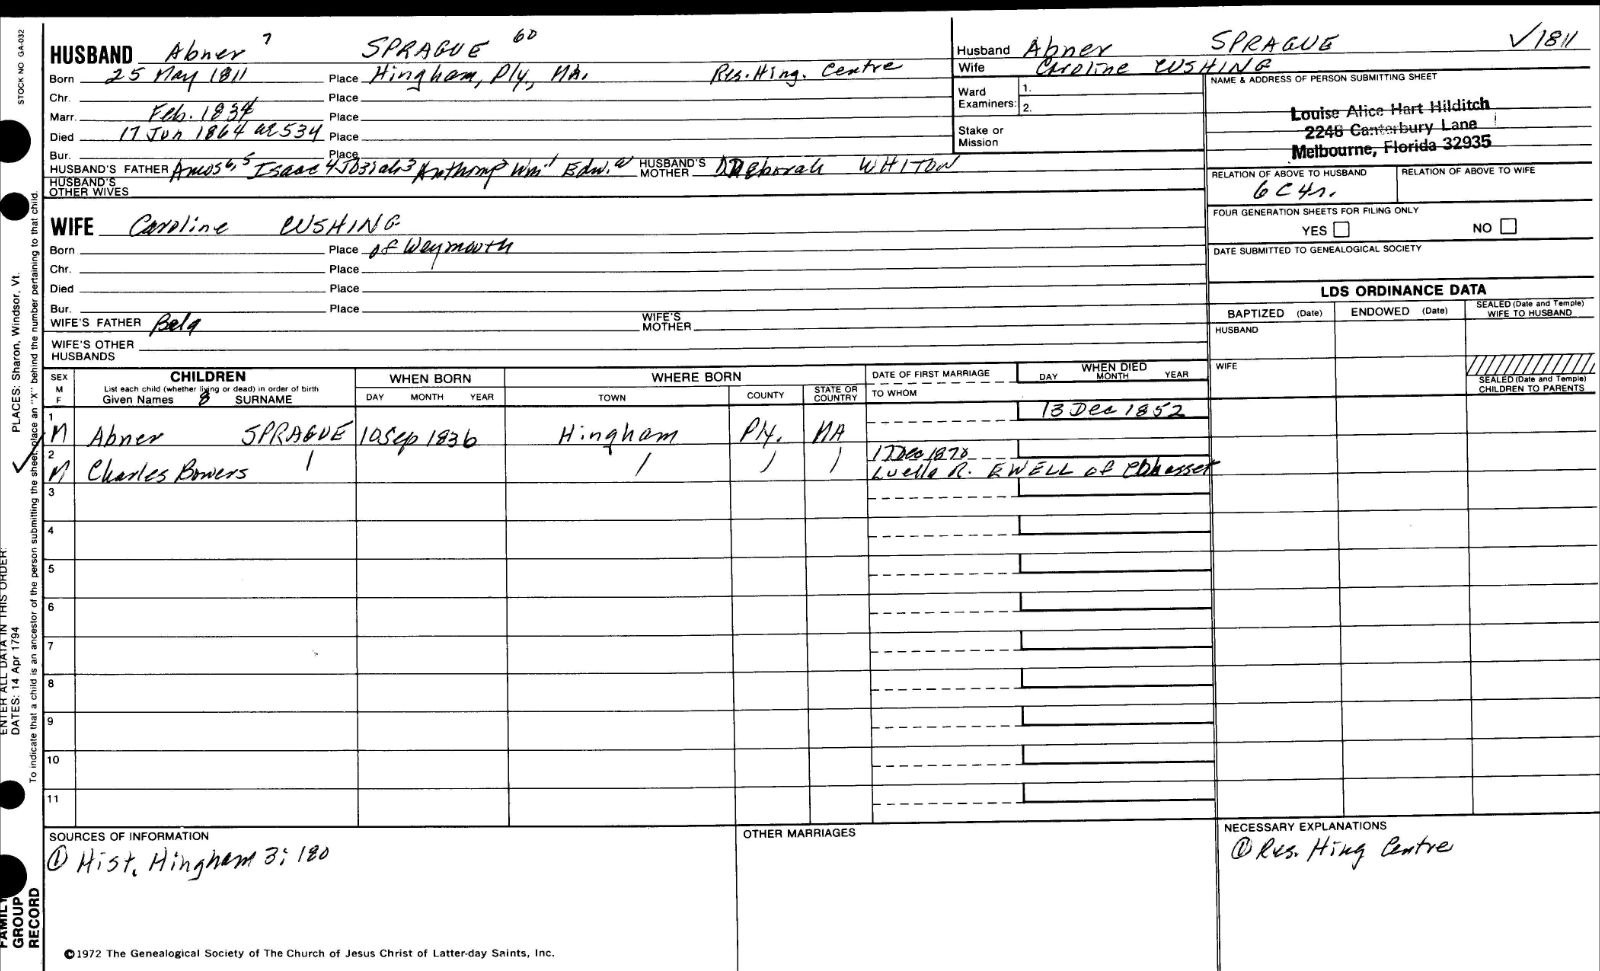 STOCK NO. GA-032
HUSBAND Abner 7 SPRAGUE 60
Born 25 May 1811 Place Hingham, Ply, MA. Res. Hing. Centre
Chr. Place
Marr. Feb. 1834 Place
Died 17 Jun 1864 ae 53y Place
Bur. Place
HUSBAND'S FATHER Amos 6, 5 Isaac 4 Josiah 3 Anthony Wm 1 Edw. a HUSBAND'S MOTHER Deborah WHITON
HUSBAND'S OTHER WIVES
WIFE Caroline CUSHING
Born Place of Weymouth
Chr. Place
Died Place
Bur. Place
WIFE'S FATHER Bela WIFE'S MOTHER
WIFE'S OTHER HUSBANDS
Husband Abner SPRAGUE √1811
Wife Caroline CUSHING
Ward Examiners: 1. 2.
Stake or Mission
NAME & ADDRESS OF PERSON SUBMITTING SHEET
Louise Alice Hart Hilditch
2248 Canterbury Lane
Melbourne, Florida 32935
RELATION OF ABOVE TO HUSBAND RELATION OF ABOVE TO WIFE
6 C 4r.
FOUR GENERATION SHEETS FOR FILING ONLY
YES NO
DATE SUBMITTED TO GENEALOGICAL SOCIETY
LDS ORDINANCE DATA
BAPTIZED (Date) ENDOWED (Date) SEALED (Date and Temple) WIFE TO HUSBAND
HUSBAND
WIFE
SEALED (Date and Temple) CHILDREN TO PARENTS
SEX M F CHILDREN WHEN BORN WHERE BORN DATE OF FIRST MARRIAGE WHEN DIED
List each child (whether living or dead) in order of birth
Given Names 8 SURNAME DAY MONTH YEAR TOWN COUNTY STATE OR COUNTRY TO WHOM DAY MONTH YEAR
1 M Abner SPRAGUE 10 Sep 1836 Hingham Ply. MA 13 Dec 1852
2 M Charles Bowers 17 Dec 1870
Luella R. EWELL of Cohasset
3
4
5
6
7
8
9
10
11
SOURCES OF INFORMATION
① Hist. Hingham 3:180
OTHER MARRIAGES
NECESSARY EXPLANATIONS
① Res. Hing Centre
©1972 The Genealogical Society of The Church of Jesus Christ of Latter-day Saints, Inc.
ENTER ALL DATA IN THIS ORDER:
DATES: 14 Apr 1794 PLACES: Sharon, Windsor, Vt.
To indicate that a child is an ancestor of the person submitting the sheet, place an "X" behind the number pertaining to that child.
FAMILY GROUP RECORD